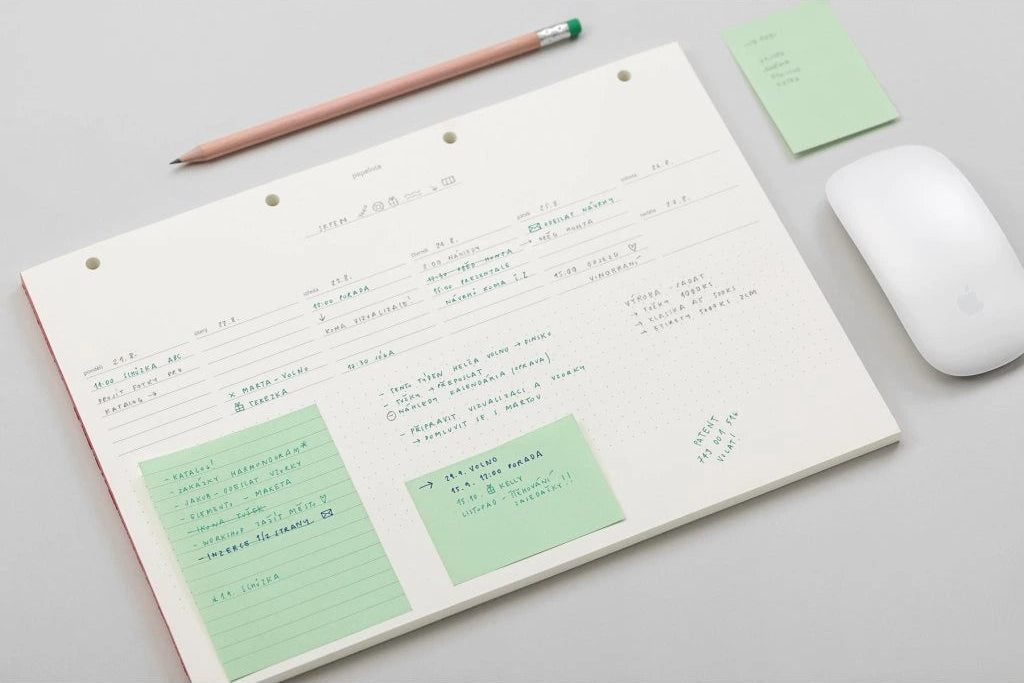 papelote
SRPEN
pondělí 21.8.
11:00 SCHŮZKA ABC
PROJÍT FOTKY PRO
KATALOG →
úterý 22.8.
× MARTA - VOLNO
TEREZKA
středa 23.8.
15:00 PORADA
↓
KOMA VIZUALIZACE!
17.30 JÓGA
čtvrtek 24.8.
9.00 NÁHLEDY
15:00 PREZENTACE
NÁVRHŮ KOMA Č.2
pátek 25.8.
ODESLAT NÁVRHY
→ MONTA
15.00 ODJEZD ♡
VINOHRANÍ
sobota 26.8.
neděle 27.8.
- TENTO TÝDEN HELČA VOLNO → FINSKO
TUŽKY → PŘEPOSLAT
NÁHLEDY KALENDÁRIA (OPRAVA)
- PŘIPRAVIT VIZUALIZACI A VZORKY
→ DOMLUVIT SE S MARTOU
VÝROBA - ZADAT
→ TUŽKY 1000KS
→ KLASIKA A5 500KS
→ ETIKETY 500KS 2CM
PATENT
VOLAT!
- KATALOG!
- ZAKÁZKY HARMONOGRAM*
- JAKUB - ODESLAT VZORKY
- ELEMENTO - MAKETA
- IKONA TUŽEK
- WORKSHOP ZAŽÍT MĚSTO ♡
- INZERCE 1/2 STRANY
× 19. SCHŮZKA
→ 29.9. VOLNO
15.9. 12:00 PORADA
15.10. KELLY
LISTOPAD - STĚHOVÁNÍ!!
ZASEDAČKY!!